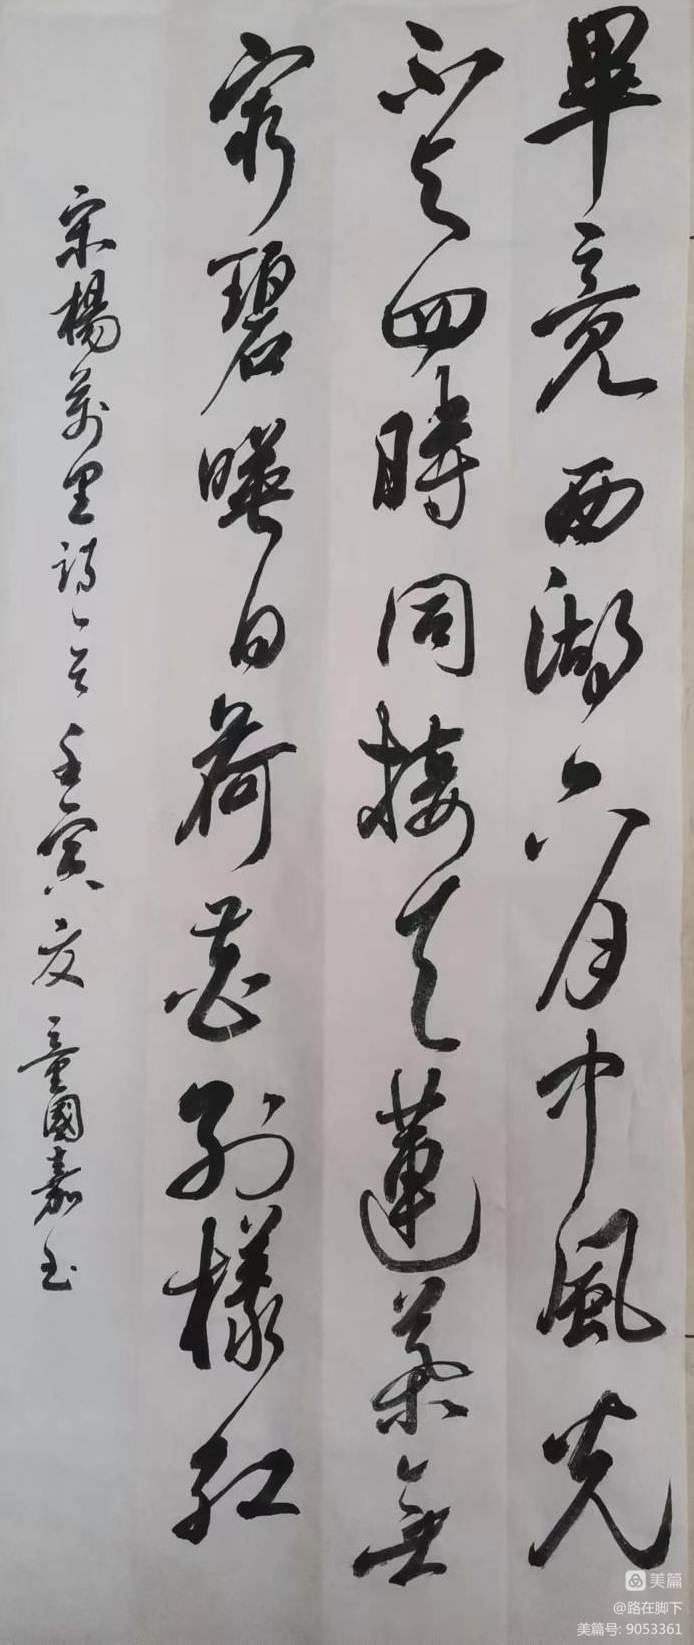 畢竟西湖六月中風光
不与四時同接天蓮葉無
窮碧暎日荷花別樣紅
宋楊萬里詩一首壬寅夏童國嘉書
美篇
@路在脚下
美篇号: 9053361